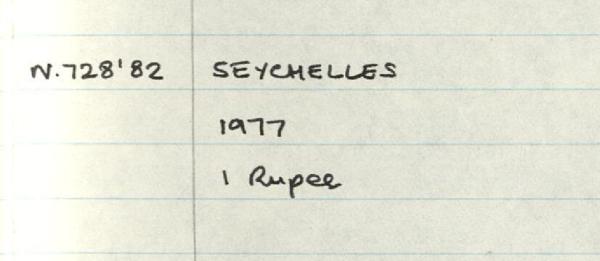 N.728'82 SEYCHELLES
1977
1 Rupee